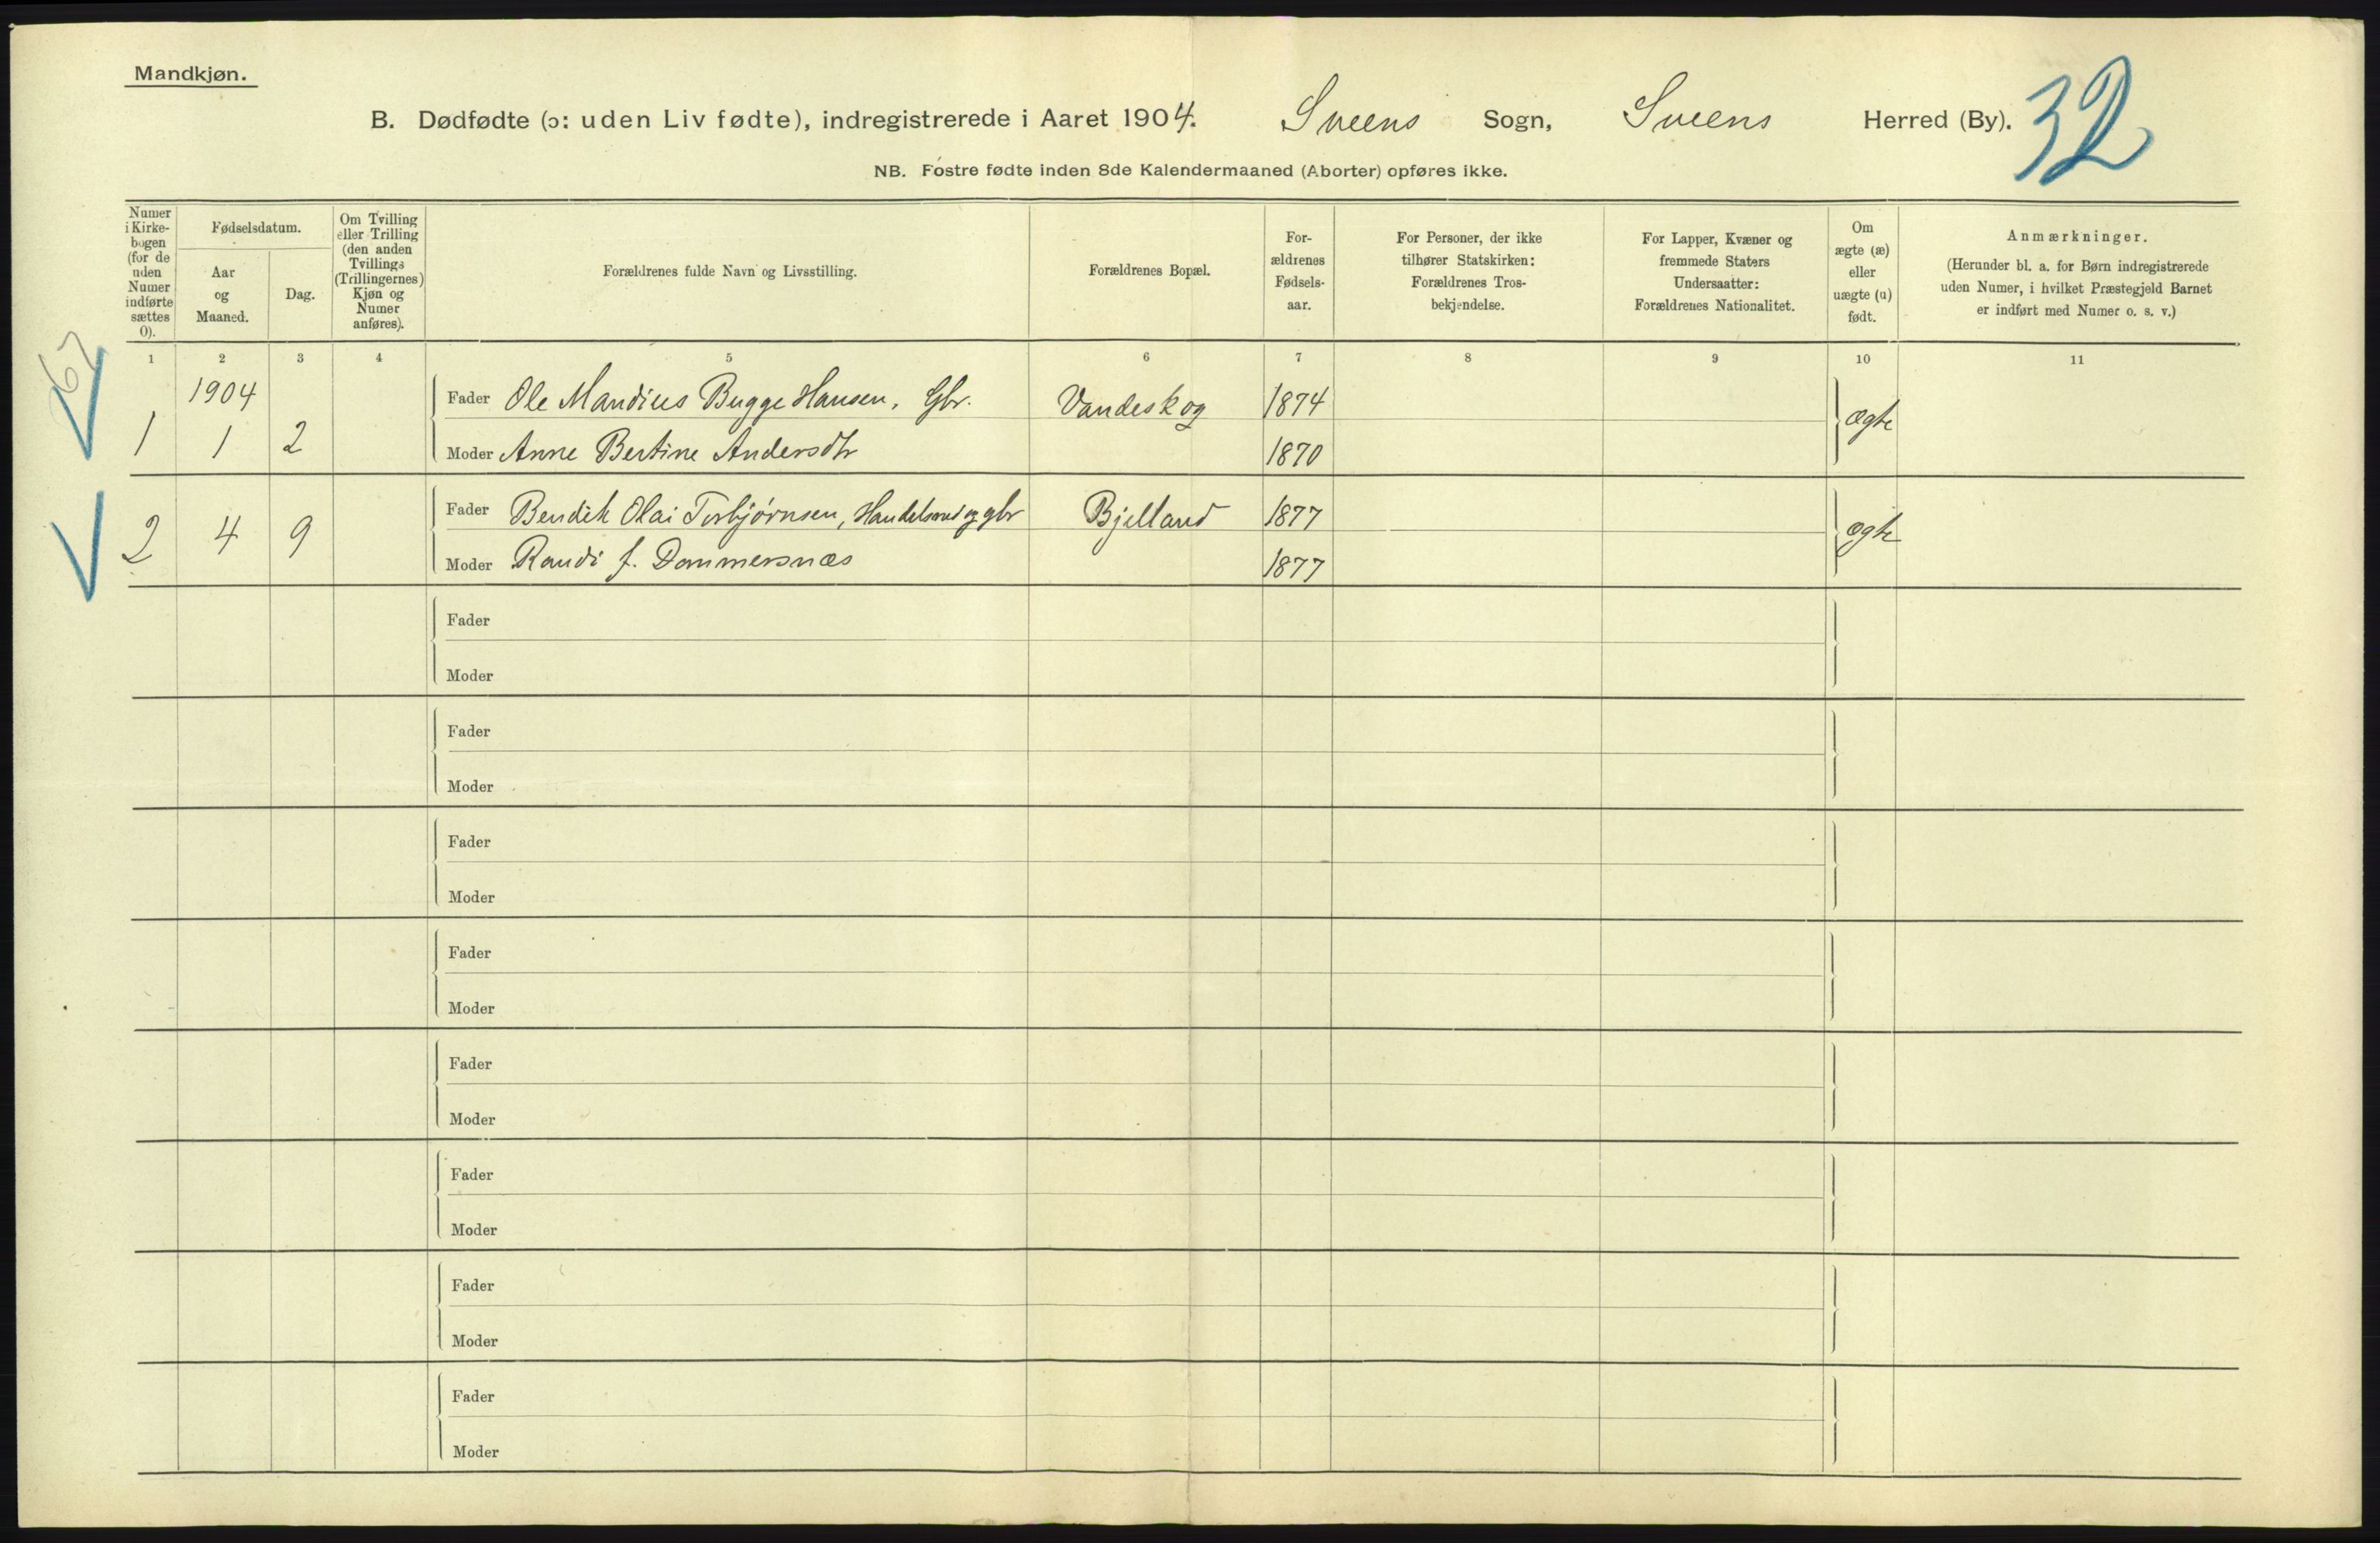 Mandkjøn.
B. Dødfødte (ɔ: uden Liv fødte), indregistrerede i Aaret 1904. Sveens Sogn, Sveens Herred (By). 32
NB. Fostre fødte inden 8de Kalendermaaned (Aborter) opføres ikke.
Numer i Kirkebogen (for de uden Numer indførte sættes 0).
Fødselsdatum.
Aar og Maaned.
Dag.
Om Tvilling eller Trilling (den anden Tvillings (Trillingernes) Kjøn og Numer anføres).
Forældrenes fulde Navn og Livsstilling.
Forældrenes Bopæl.
For-ældrenes Fødsels-aar.
For Personer, der ikke tilhører Statskirken: Forældrenes Tros-bekjendelse.
For Lapper, Kvæner og fremmede Staters Undersaatter: Forældrenes Nationalitet.
Om ægte (æ) eller uægte (u) født.
Anmærkninger.
(Herunder bl. a. for Børn indregistrerede uden Numer, i hvilket Præstegjeld Barnet er indført med Numer o. s. v.)
1 2 3 4 5 6 7 8 9 10 11
67
1904 Fader Ole Mandius Bugge Hansen, Gbr. Vandeskog 1874 ægte
1 1 2 Moder Anne Bertine Andersdtr 1870
Fader Bendik Olai Torbjørnsen, Handelsmd og gbr Bjelland 1877 ægte
2 4 9 Moder Randi f. Dommersnæs 1877
Fader
Moder
Fader
Moder
Fader
Moder
Fader
Moder
Fader
Moder
Fader
Moder
Fader
Moder
Fader
Moder